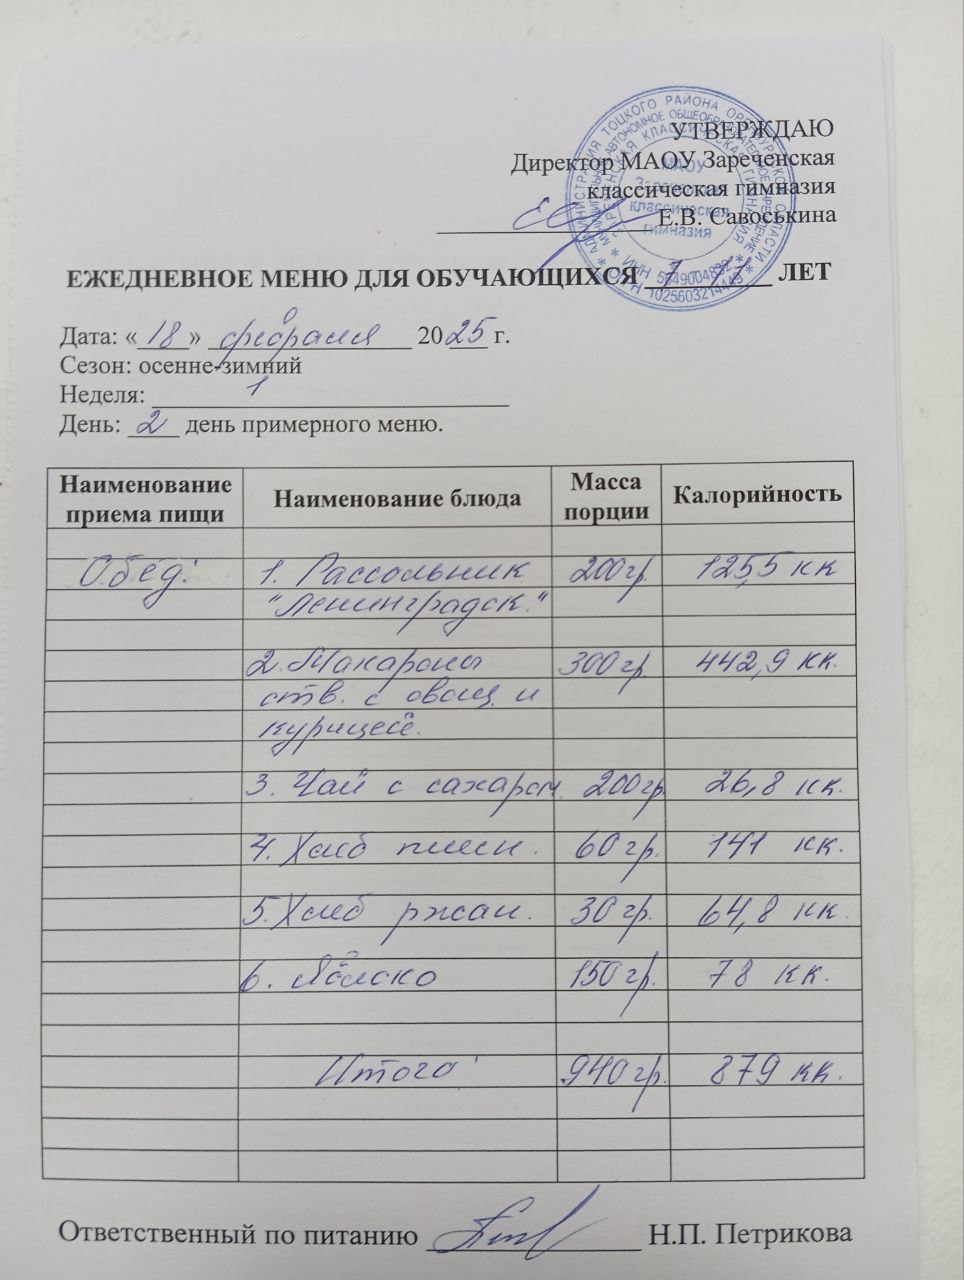 УТВЕРЖДАЮ
Директор МАОУ Зареченская
классическая гимназия
Е.В. Савоськина
АДМИНИСТРАЦИЯ ТОЦКОГО РАЙОНА ОРЕНБУРГСКОЙ ОБЛАСТИ
МАОУ
классическая
гимназия
ОГРН 1025603214449
ЕЖЕДНЕВНОЕ МЕНЮ ДЛЯ ОБУЧАЮЩИХСЯ 7 - 11 ЛЕТ
Дата: «18» февраля 2025 г.
Сезон: осенне-зимний
Неделя: 1
День: 2 день примерного меню.
Наименование приема пищи Наименование блюда Масса порции Калорийность
Обед: 1. Рассольник 200 гр. 125,5 кк
"Ленинградск."
2. Макароны 300 гр. 442,9 кк.
отв. с овощ. и
курицей.
3. Чай с сахаром. 200 гр. 26,8 кк.
4. Хлеб пшен. 60 гр. 141 кк.
5. Хлеб ржан. 30 гр. 64,8 кк.
6. Яблоко 150 гр. 78 кк.
Итого: 940 гр. 879 кк.
Ответственный по питанию Н.П. Петрикова